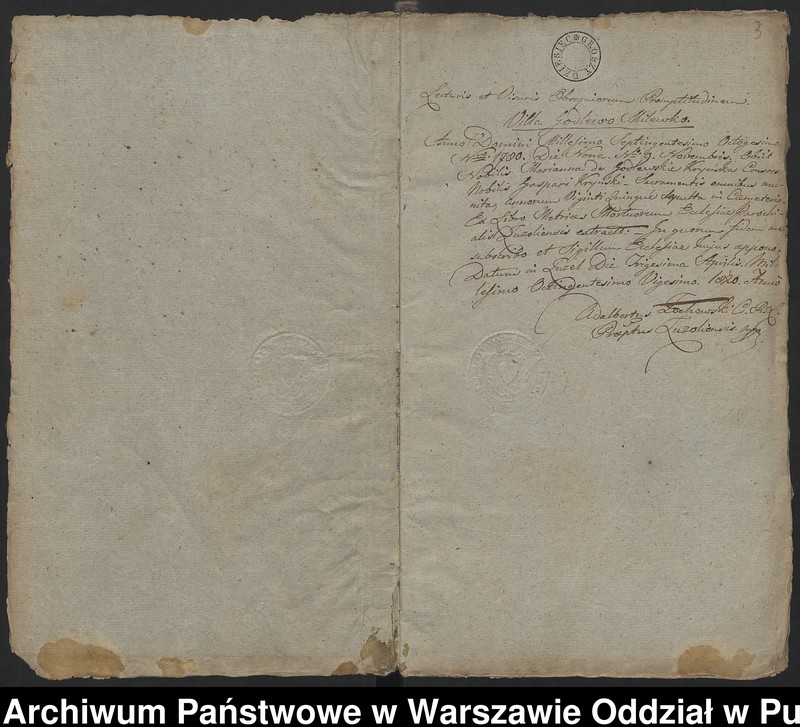 3
DZIESIĘC GROSZY
Lecturis et Visuris Obsequiorum Promptitudinem.
Villa Godlewo Milewko.
Anno Domini Millesimo Septingentesimo Octogesimo
1780. Die Nona. Nro 9. Novembris, Obiit
Nobilis Marianna de Godlewskie Kryńska Consors
Nobilis Gaspari Kryński - Sacramentis omnibus mu-
nita, annorum Viginti Quinque Sepulta in Cæmeterio
Ex Libro Metrices Mortuorum Ecclesiæ Parochi-
alis Zuzoliensis extractt. - In quorum fidem me
subscribo et Sigillum Ecclesiæ hujus appono.
Datum in Zuzel Die Trigesima Aprilis. Mil-
lesimo Octingentesimo Vigesimo. 1820. Anno
Adalbertus
Zuzoliensis
Archiwum Państwowe w Warszawie Oddział w Pu